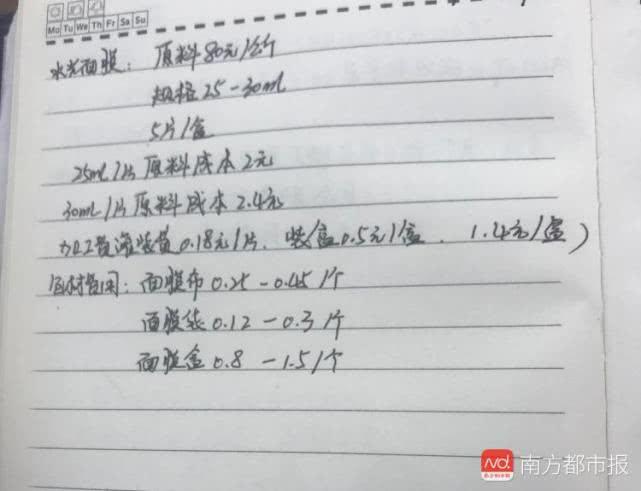 Mo Tu We Th Fr Sa Su
水光面膜：原料80元/公斤
规格25-30ml
5片/盒
25ml/片原料成本2元
30ml/片原料成本2.4元
加工费灌装费0.18元/片、装盒0.5元/盒、1.4元/盒)
包材费用：面膜布0.25-0.45/个
面膜袋0.12-0.3/个
面膜盒0.8-1.5/个
Nd. 南方都市报